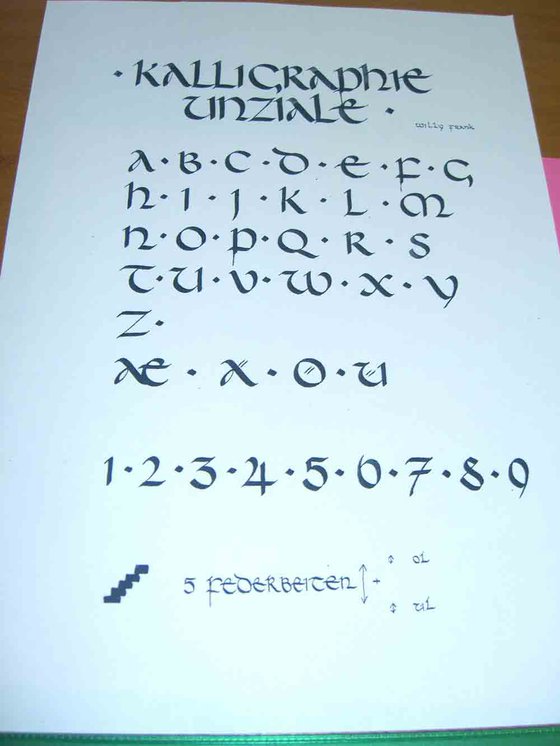 · KALLIGRAPHIE
UNZIALE ·
Willy Frank
A · B · C · D · E · F · G
H · I · J · K · L · M
N · O · P · Q · R · S
T · U · V · W · X · Y
Z ·
Æ · Ä · Ö · Ü
1 · 2 · 3 · 4 · 5 · 6 · 7 · 8 · 9
OL
5 FEDERBEITEN +
UL